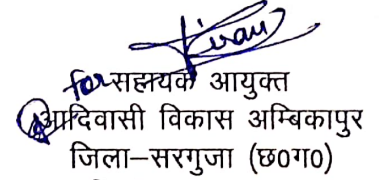 Kiran
for सहायक आयुक्त
आदिवासी विकास अम्बिकापुर
जिला–सरगुजा (छ0ग0)